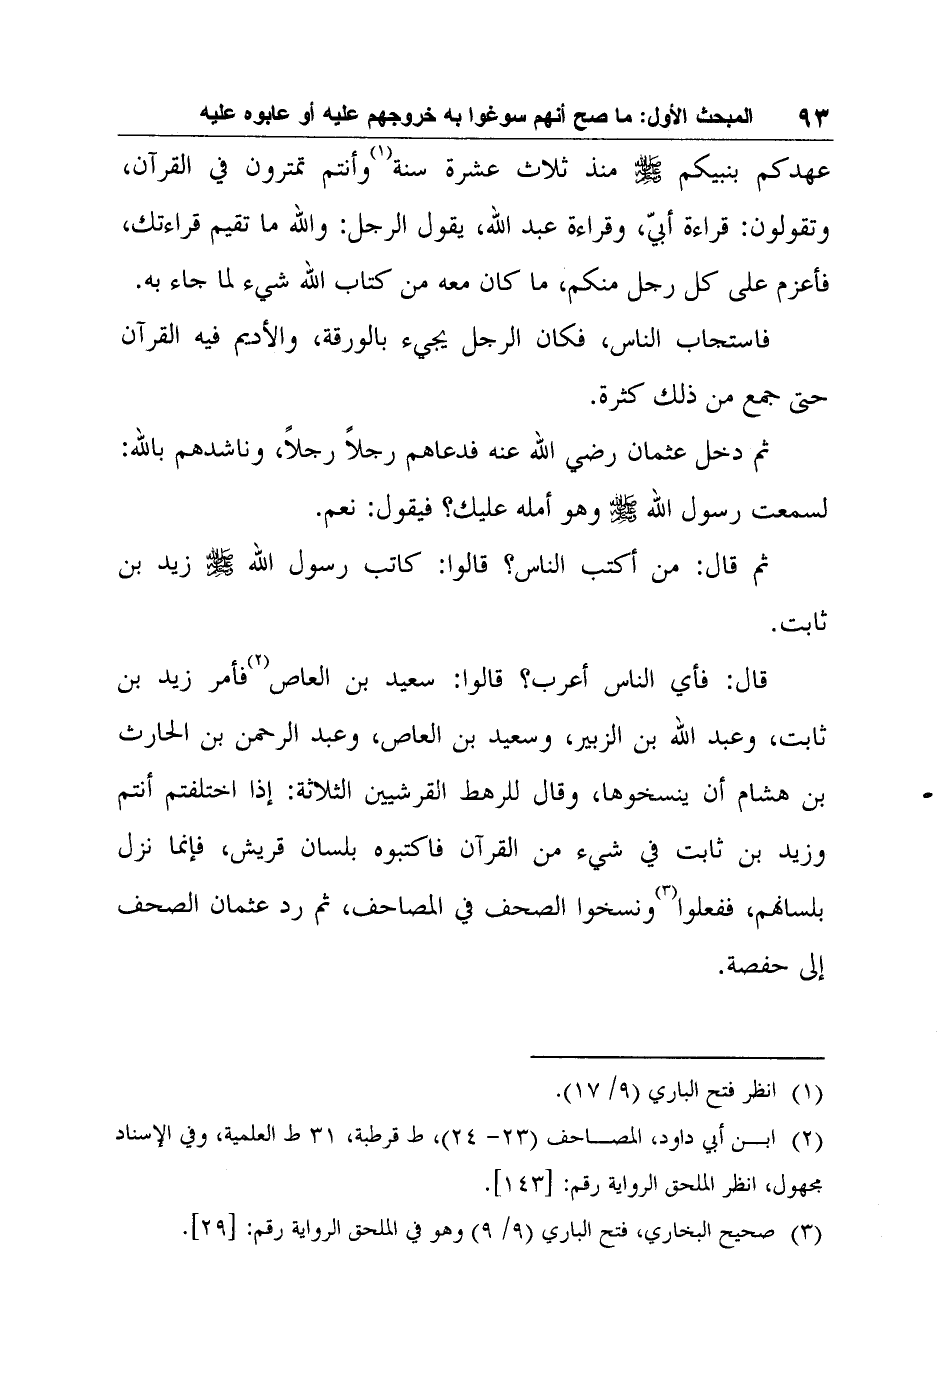 ٩٣ المبحث الأول: ما صح أنهم سوغوا به خروجهم عليه أو عابوه عليه
عهدكم بنبيكم ﷺ منذ ثلاث عشرة سنة(١) وأنتم تمترون في القرآن،
وتقولون: قراءة أبيّ، وقراءة عبد الله، يقول الرجل: والله ما تقيم قراءتك،
فأعزم على كل رجل منكم، ما كان معه من كتاب الله شيء لما جاء به.
فاستجاب الناس، فكان الرجل يجيء بالورقة، والأديم فيه القرآن
حتى جمع من ذلك كثرة.
ثم دخل عثمان رضي الله عنه فدعاهم رجلاً رجلاً، وناشدهم بالله:
لسمعت رسول الله ﷺ وهو أمله عليك؟ فيقول: نعم.
ثم قال: من أكتب الناس؟ قالوا: كاتب رسول الله ﷺ زيد بن
ثابت.
قال: فأي الناس أعرب؟ قالوا: سعيد بن العاص(٢) فأمر زيد بن
ثابت، وعبد الله بن الزبير، وسعيد بن العاص، وعبد الرحمن بن الحارث
بن هشام أن ينسخوها، وقال للرهط القرشيين الثلاثة: إذا اختلفتم أنتم
وزيد بن ثابت في شيء من القرآن فاكتبوه بلسان قريش، فإنما نزل
بلسانهم، ففعلوا(٣) ونسخوا الصحف في المصاحف، ثم رد عثمان الصحف
إلى حفصة.
(١) انظر فتح الباري (٩/ ١٧).
(٢) ابـــن أبي داود، المصـــاحف (٢٣- ٢٤)، ط قرطبة، ٣١ ط العلمية، وفي الإسناد
مجهول، انظر الملحق الرواية رقم: [١٤٣].
(٣) صحيح البخاري، فتح الباري (٩/ ٩) وهو في الملحق الرواية رقم: [٢٩].